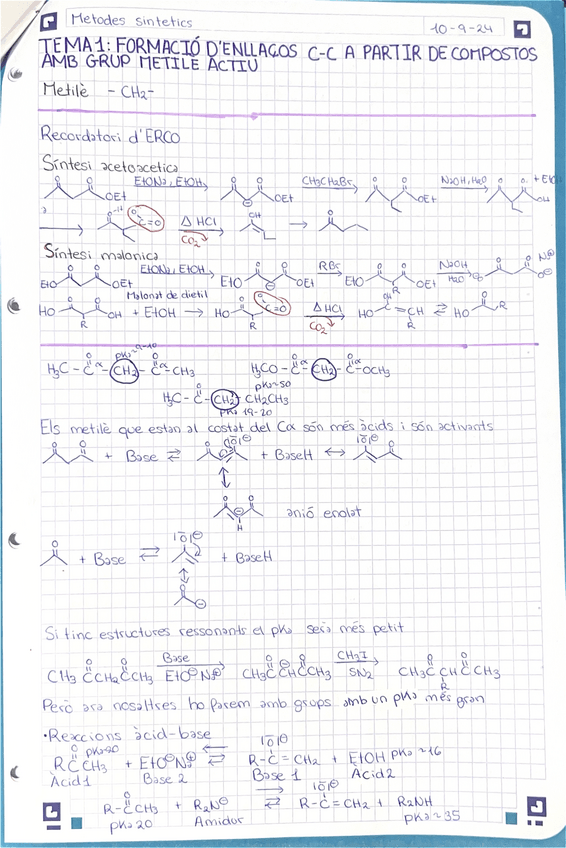 Metodes sintetics
10-9-24
TEMA 1: FORMACIÓ D'ENLLAÇOS C-C A PARTIR DE COMPOSTOS
AMB GRUP METILÈ ACTIU
Metilè - CH2-
Recordatori d'ERCO
Síntesi acetoacetica
O O OEt EtONa, EtOH O O OEt CH3CH2Br O O OEt NaOH, H2O O O OH + EtOH
O H O C=O Δ HCl CO2 OH O
Síntesi malonica
EtO O O OEt EtONa, EtOH EtO O O OEt RBr EtO O O OEt R NaOH H2O O O
Malonat de dietil
HO O O OH R + EtOH → HO O C=O R Δ HCl CO2 HO OH C=CH R ⇌ HO O R
pKa≈9-10
H3C - C - CH2 - C - CH3 H3CO - C - CH2 - C - OCH3
H3C - C - CH2 - CH2CH3
pKa 19-20
Els metilè que estan al costat del Cα són més àcids i són activants
+ Base ⇌ + BaseH ↔
anió enolat
+ Base ⇌ + BaseH
Si tinc estructures ressonants el pKa serà més petit
CH3CCH2CCH3 Base EtO⊖Na⊕ CH3CCHCCH3 CH3I SN2 CH3CCHCCH3 R
Però ara nosaltres ho farem amb grups amb un pKa més gran
·Reaccions àcid-base
pKa≈20
RCCH3 + EtO⊖Na⊕ ⇌ R-C=CH2 + EtOH pKa ~16
Àcid 1 Base 2 Base 1 Àcid 2
R-CCH3 + R2N⊖ ⇌ R-C=CH2 + R2NH
pKa 20 Amidur pKa ≈ 35